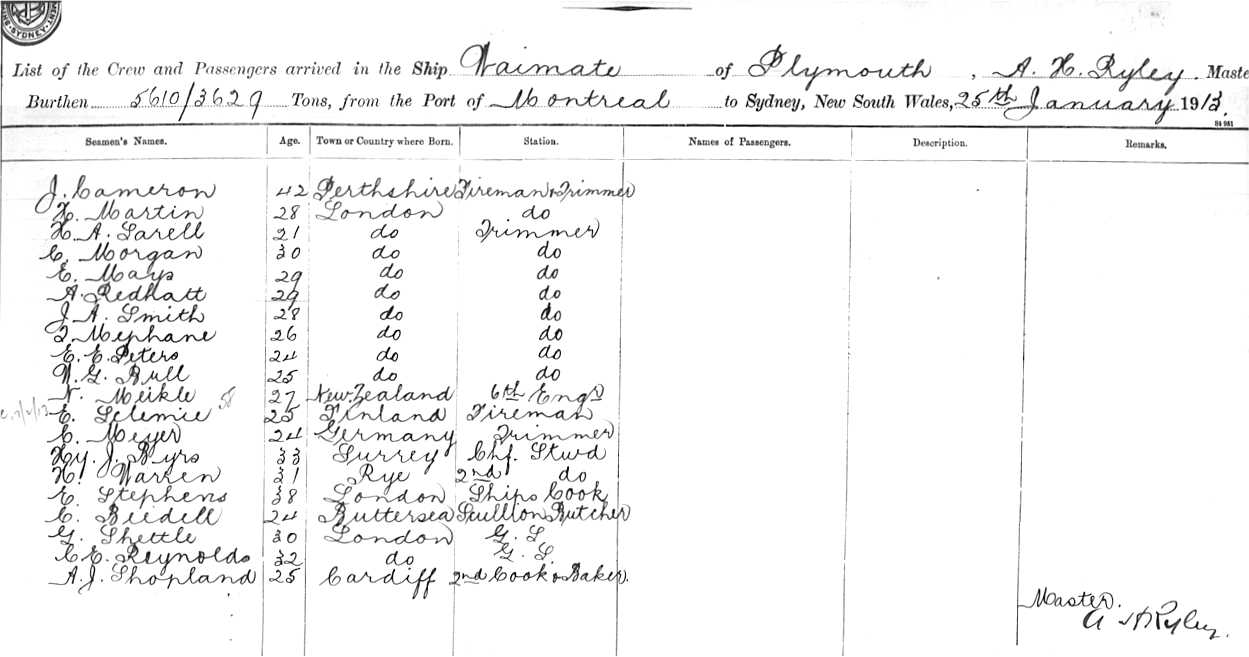 SYDNEY
List of the Crew and Passengers arrived in the Ship Waimate of Plymouth, A. H. Ryley. Maste
Burthen 5610/3629 Tons, from the Port of Montreal to Sydney, New South Wales, 25th January 1913.
St 981
Seamen's Names. Age. Town or Country where Born. Station. Names of Passengers. Description. Remarks.
J. Cameron 42 Perthshire Fireman & Trimmer
H. Martin 28 London do
H. A. Sarell 21 do Trimmer
C. Morgan 30 do do
E. Mays 29 do do
A. Redhatt 29 do do
J. A. Smith 28 do do
T. Mephane 26 do do
E. E. Peters 24 do do
W. G. Bull 25 do do
N. Meikle 27 New Zealand 6th Engr
E. Selemie 25 Finland Fireman
C. Meyer 24 Germany Trimmer
Hy. J. Byrs 33 Surrey Chf. Stwd
H. Warren 31 Rye 2nd do
E. Stephens 38 London Ships Cook
C. Beedell 24 Buttersea Scullion Butcher
G. Shettle 30 London G. S.
C E. Reynolds 32 do G. S.
A. J. Shopland 25 Cardiff 2nd Cook & Baker.
Master.
A H Ryley.